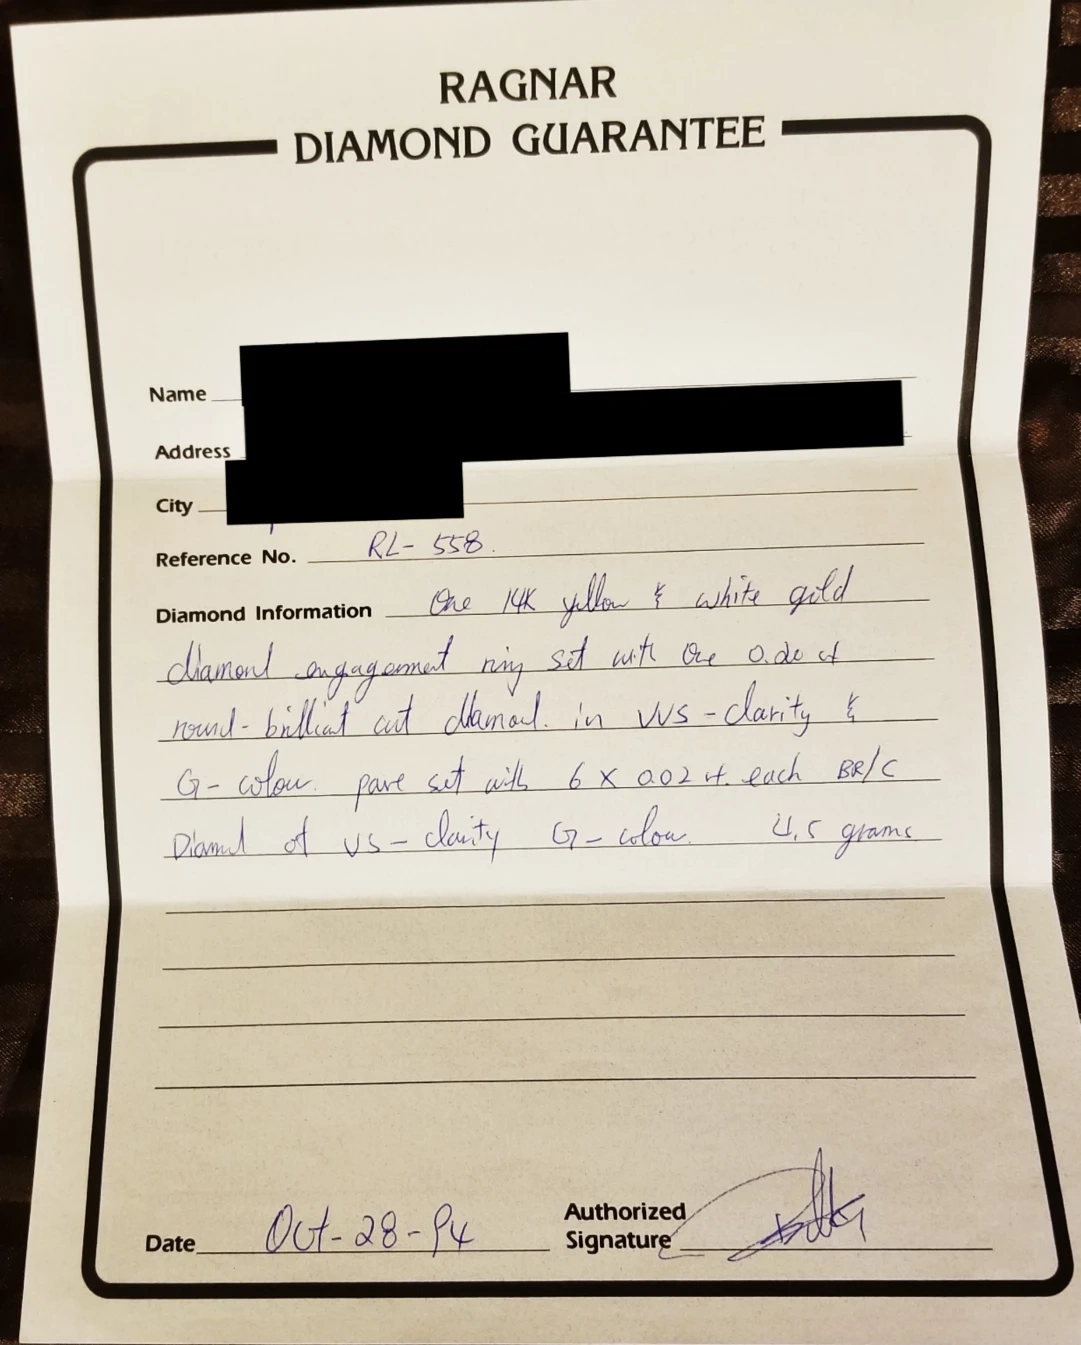 RAGNAR
DIAMOND GUARANTEE
Name
Address
City
Reference No. RL- 558.
Diamond Information One 14K yellow & white gold
diamond engagement ring set with One 0.20 ct
round-brilliant cut diamond. in VVS-clarity &
G-colour. pave set with 6 X 0.02 ct. each BR/C
Diamd of VS-clarity G-colour. 4.5 grams
Date Oct-28-94
Authorized
Signature